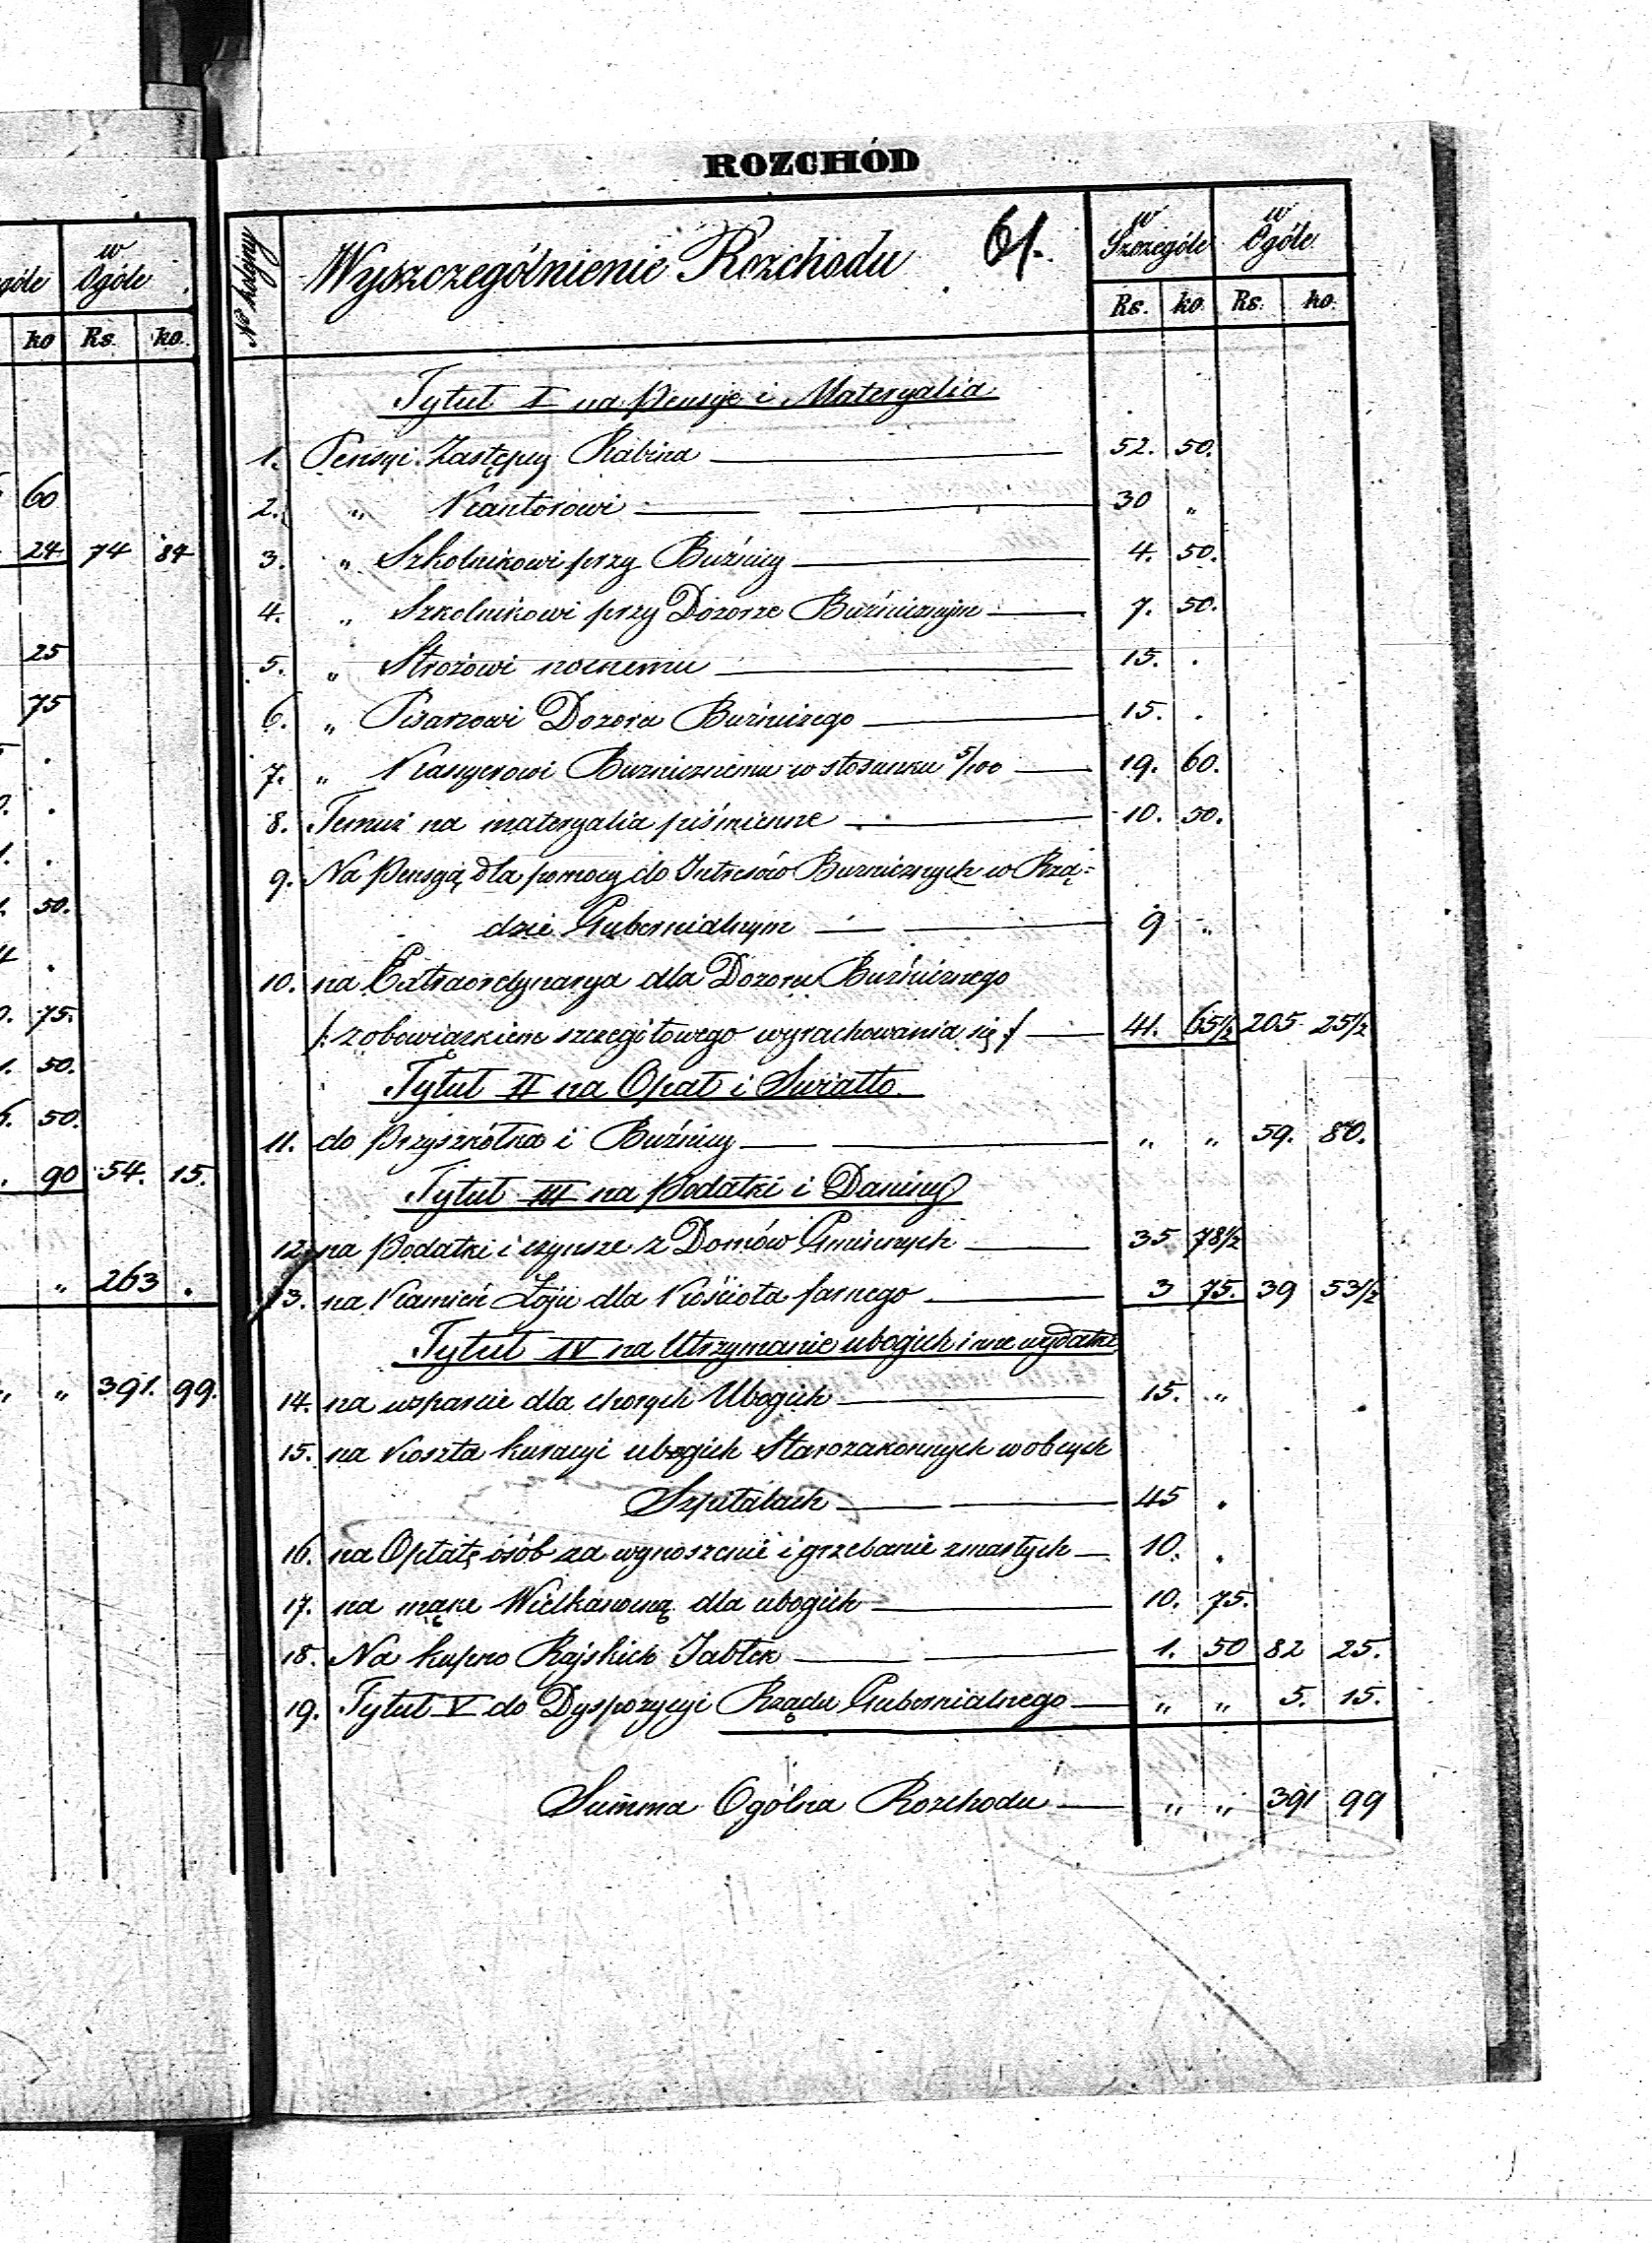 góle
w
Ogóle
ko Rs. ko.
60
24 74 84
25
75
50.
75.
50.
50.
90 54. 15.
" 263 .
" " 391. 99.
ROZCHÓD
No kolejny
Wyszczególnienie Rozchodu 61.
w Szczególe
w Ogóle
Rs. ko. Rs. ko.
Tytuł I na Pensye i Materyalia
1. Pensyi Zastępcy Rabina 52. 50.
2. " Kantorowi 30 "
3. " Szkolnikowi przy Buźnicy 4. 50.
4. " Szkolnikowi przy Dozorze Buźnicznym 7. 50.
5. " Strożowi nocnemu 15. .
6. " Pisarzowi Dozoru Buźniczego 15. .
7. " Kasyerowi Buzniczniemu w stosunku 5/100 19. 60.
8. Temuż na materyalia piśmienne 10. 50.
9. Na Pensyą dla pomocy do Intresów Buznicznych w Rzą=
dzie Gubernialnym 9 "
10. na Extraordynarya dla Dozoru Buźnicznego
/: z obowiązkiem szczegółowego wyrachowania się :/ 41. 65½ 205 25½
Tytuł II na Opał i Swiatło.
11. do Przyszkółka i Buźnicy " " 59. 80.
Tytuł III na Podatki i Daniny
12. na Podatki i czynsze z Domów Gminnych 35 78½
13. na Kamień Łoju dla Kościoła farnego 3 75. 39 53½
Tytuł IV na Utrzymanie ubogich i nne wydatki
14. na wsparcie dla chorych Ubogich 15. "
15. na koszta kuracyi ubogich Starozakonnych w obcych
Szpitalach 45 .
16. na Opłatę osób za wynoszenie i grzebanie zmarłych 10. .
17. na mąkę Wielkanocną dla ubogich 10. 75.
18. Na kupno Rajskich Jabłek 1. 50 82 25.
19. Tytuł V do Dyspozycyi Rządu Gubernialnego " " 5. 15.
Summa Ogólna Rozchodu " " 391 99